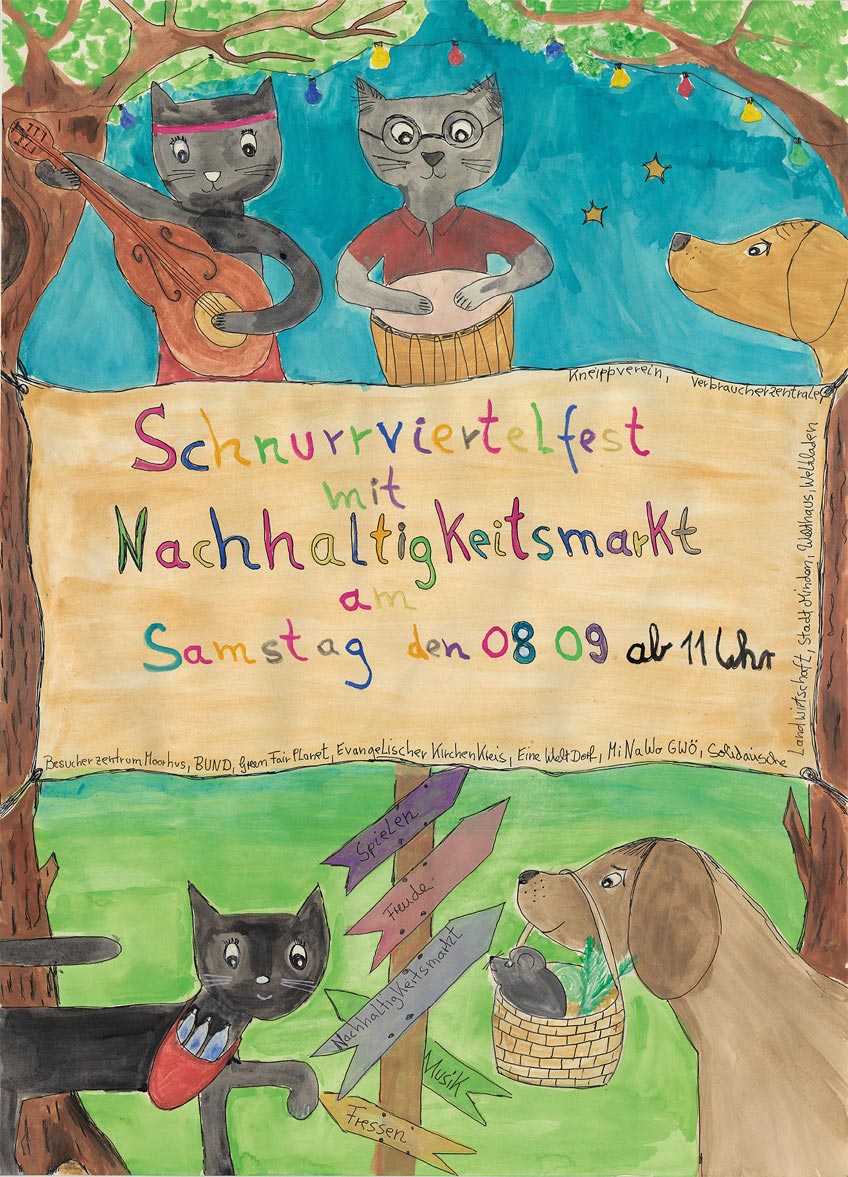 Schnurrviertelfest
mit
Nachhaltigkeitsmarkt
am
Samstag den 08 09 ab 11 Uhr
Besucherzentrum Moorhus, BUND, Green Fair Planet, Evangelischer KirchenKreis, Eine Welt Dorf, MiNaWo GWÖ, Solidarische
Landwirtschaft, Stadt Minden, Welthaus, Weltladen
Kneippverein, Verbraucherzentrale
Spielen
Freude
Nachhaltigkeitsmarkt
Musik
Fressen